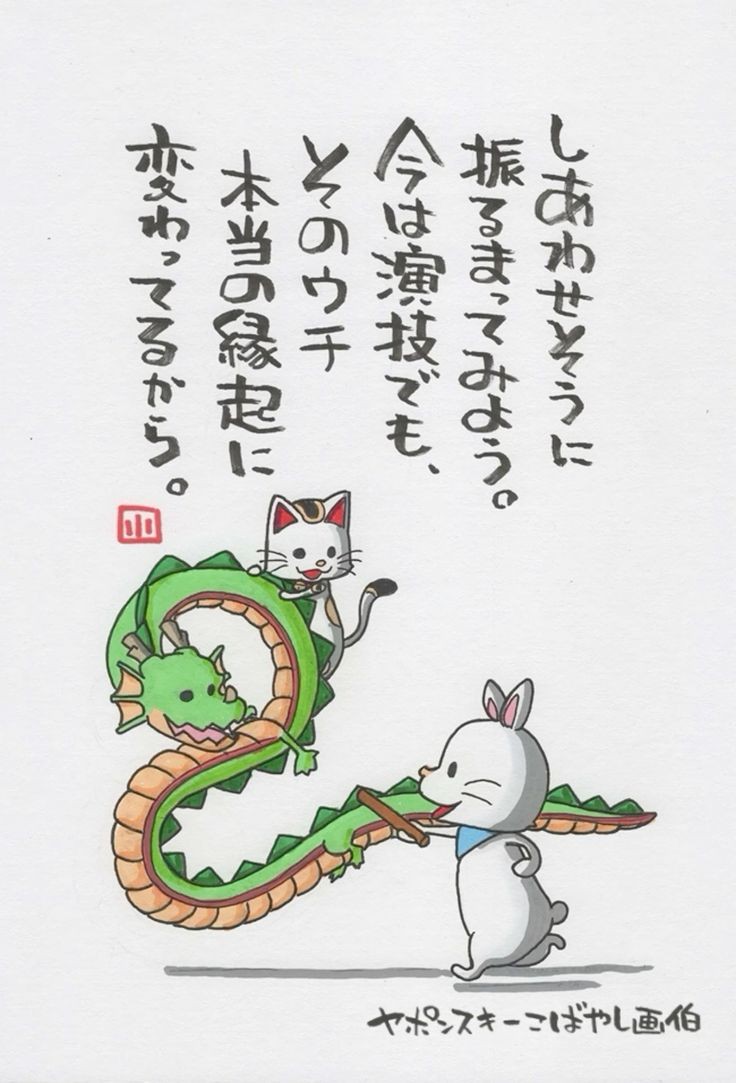 しあわせそうに
振るまってみよう。
今は演技でも、
そのウチ
本当の縁起に
変わってるから。
小
ヤポンスキーこばやし画伯